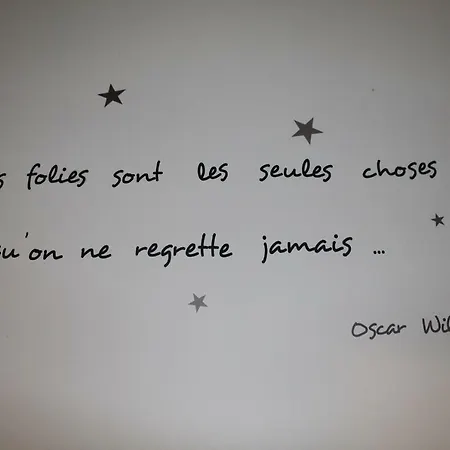 s folies sont les seules choses
qu'on ne regrette jamais ...
Oscar Wil